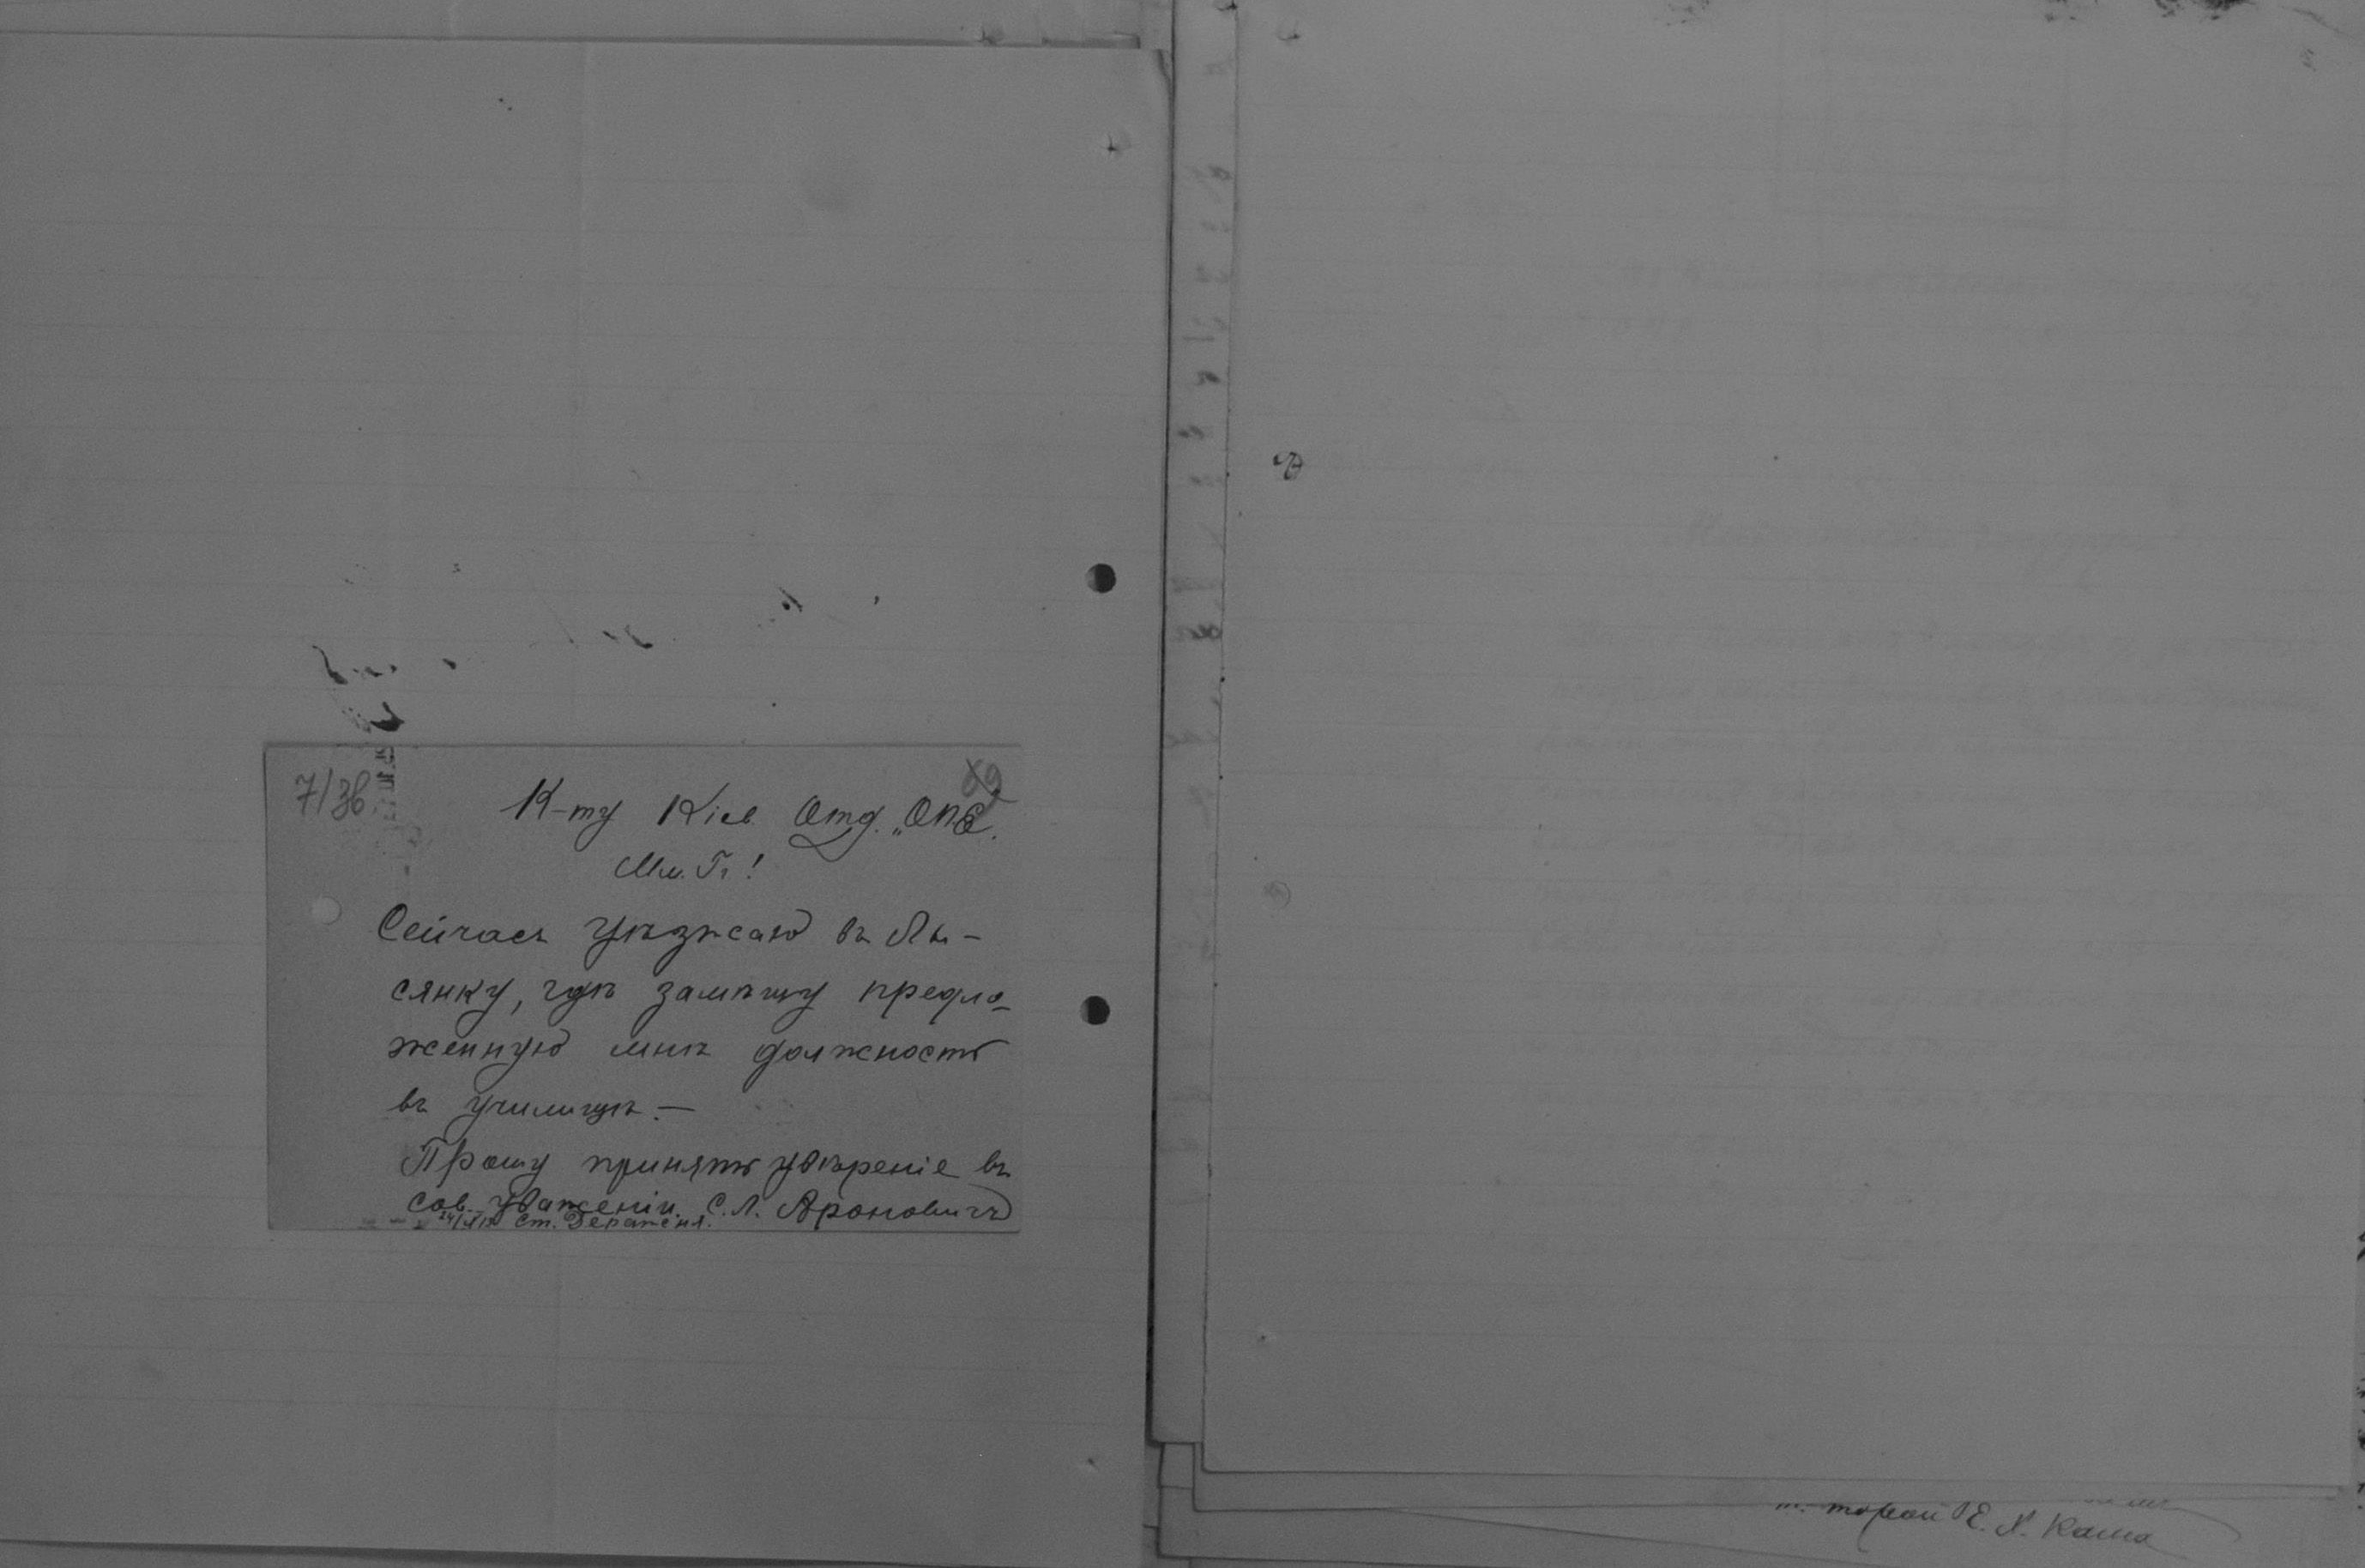 7/38
89
К-ту Кіев. Отд. „ОПЕ“.
Мм. Гг!
Сейчасъ уѣзжаю въ Лы-
сянку, гдѣ замѣщу предло-
женную мнѣ должность
въ училищѣ. —
Прошу принять увѣреніе въ
сов. уваженіи. С. Л. Ароновичъ
ст. Деражня.
Е. Х. Каша